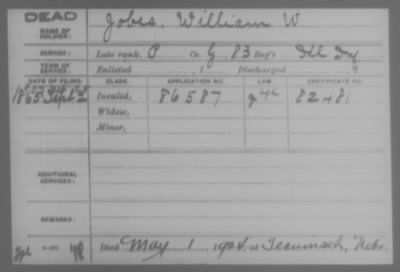 DEAD
NAME OF SOLDIER: Jobes, William W.
SERVICE: Late rank, P Co. G, 83 Reg't Ill Inf
TERM OF SERVICE: Enlisted , 1 Discharged , 1
DATE OF FILING. CLASS. APPLICATION NO. LAW. CERTIFICATE NO.
1865 Sept 2 Invalid, 86587 82481
Widow,
Minor,
ADDITIONAL SERVICES:
REMARKS:
Died May 1, 1904, at Tecumseh, Nebr.